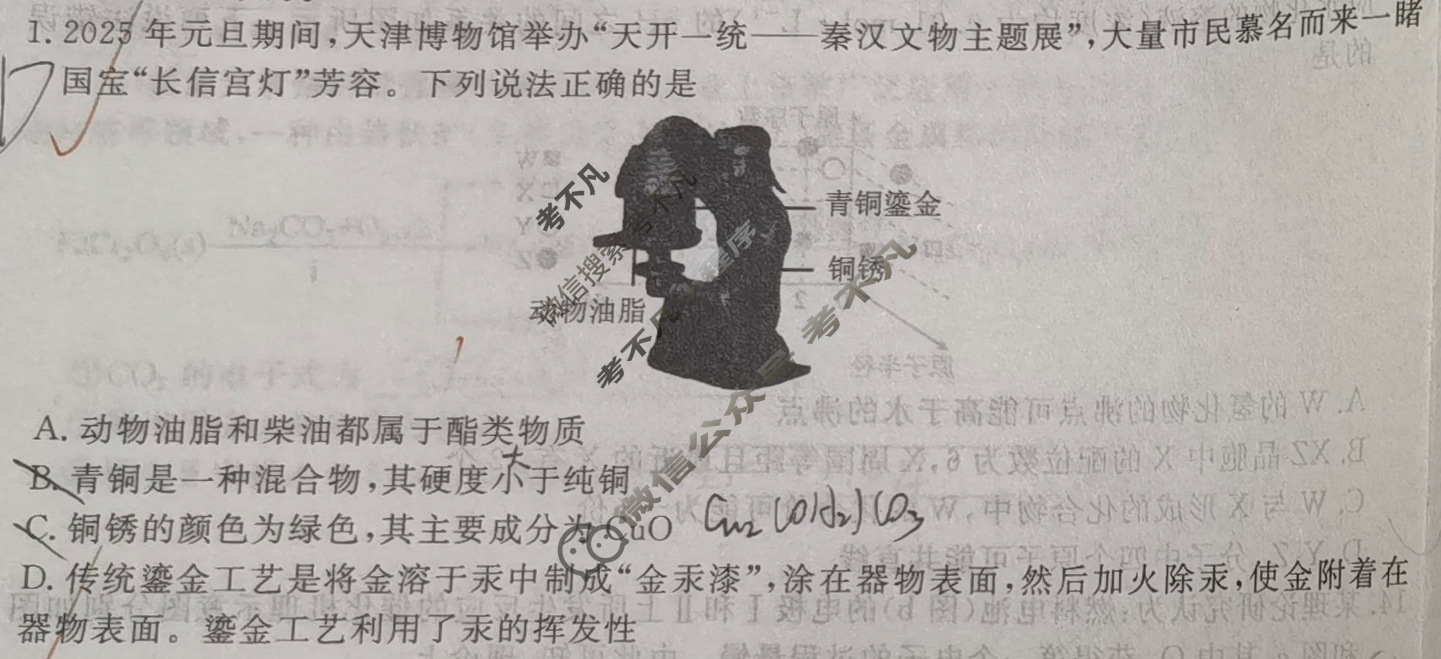 1. 2025 年元旦期间,天津博物馆举办“天开一统——秦汉文物主题展”,大量市民慕名而来一睹
国宝“长信宫灯”芳容。下列说法正确的是
青铜鎏金
铜锈
动物油脂
考不凡
微信搜索考不凡
考不凡
微信公众号 考不凡
A. 动物油脂和柴油都属于酯类物质
大
B. 青铜是一种混合物,其硬度小于纯铜
C. 铜锈的颜色为绿色,其主要成分为 CuO Cu₂(OH₂)CO₃
D. 传统鎏金工艺是将金溶于汞中制成“金汞漆”,涂在器物表面,然后加火除汞,使金附着在
器物表面。鎏金工艺利用了汞的挥发性